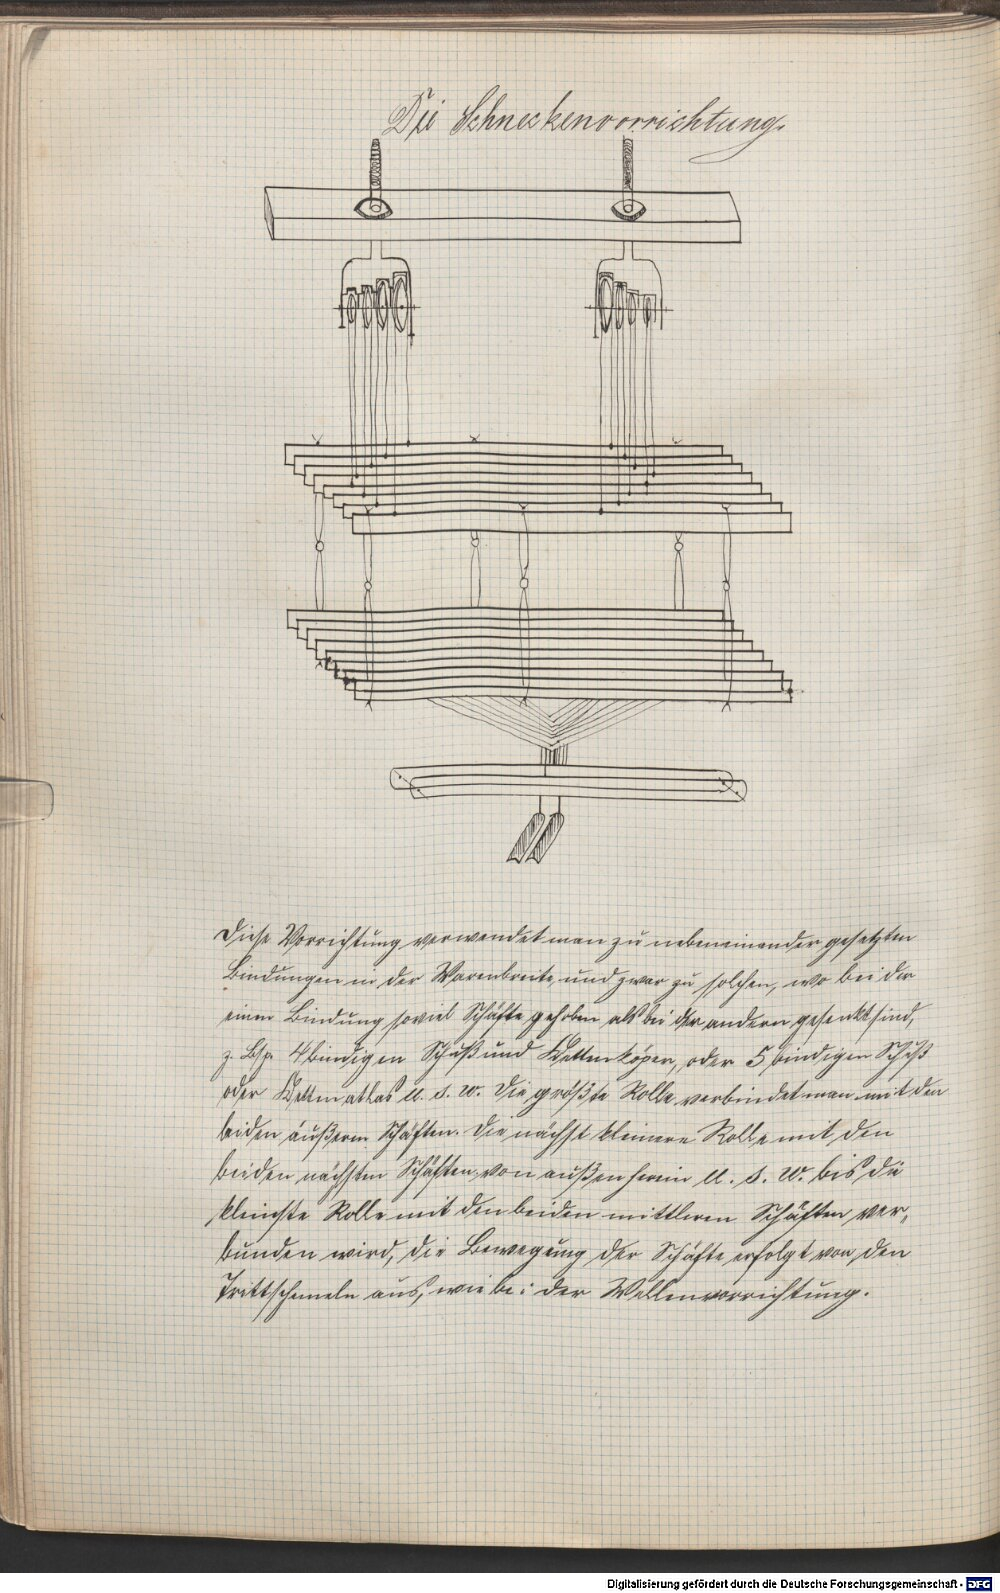 Die Schneckenvorrichtung.
Diese Vorrichtung verwendet man zu nebeneinander gesetzten
Bindungen in der Warenbreite, und zwar zu solchen, wo bei der
einen Bindung soviel Schäfte gehoben, als bei der andern gesenkt sind,
z. Bsp. 4 bindigen Schuß und Kettenköper, oder 5 bindigen Schuß
oder Kettenatlas u. s. w. Die größte Rolle verbindet man mit den
beiden äußeren Schäften. Die nächst kleinere Rolle mit den
beiden nächsten Schäften von außen herein u. s. w. bis die
kleinste Rolle mit den beiden mittleren Schäften ver„
bunden wird, die Bewegung der Schäfte erfolgt von den
Trittschemeln aus, wie bei der Wellenvorrichtung.
Digitalisierung gefördert durch die Deutsche Forschungsgemeinschaft - DFG